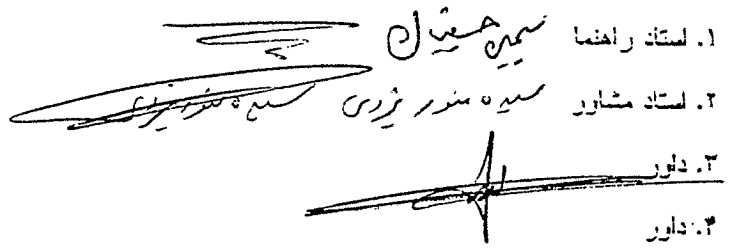 ۱. استاد راهنما سیمین حسینیان
۲. استاد مشاور سیده منور یزدی سیده منور یزدی
۳. داور
۴. داور